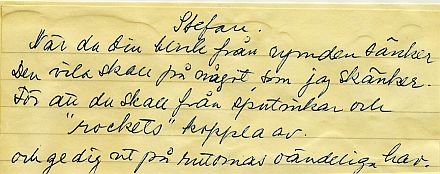 Stefan.
När du din blick från rymden sänker
Den vila skall på något som jag skänker.
För att du skall från sputnikar och
"rockets" koppla av.
och ge dig ut på rutornas oändeliga hav.